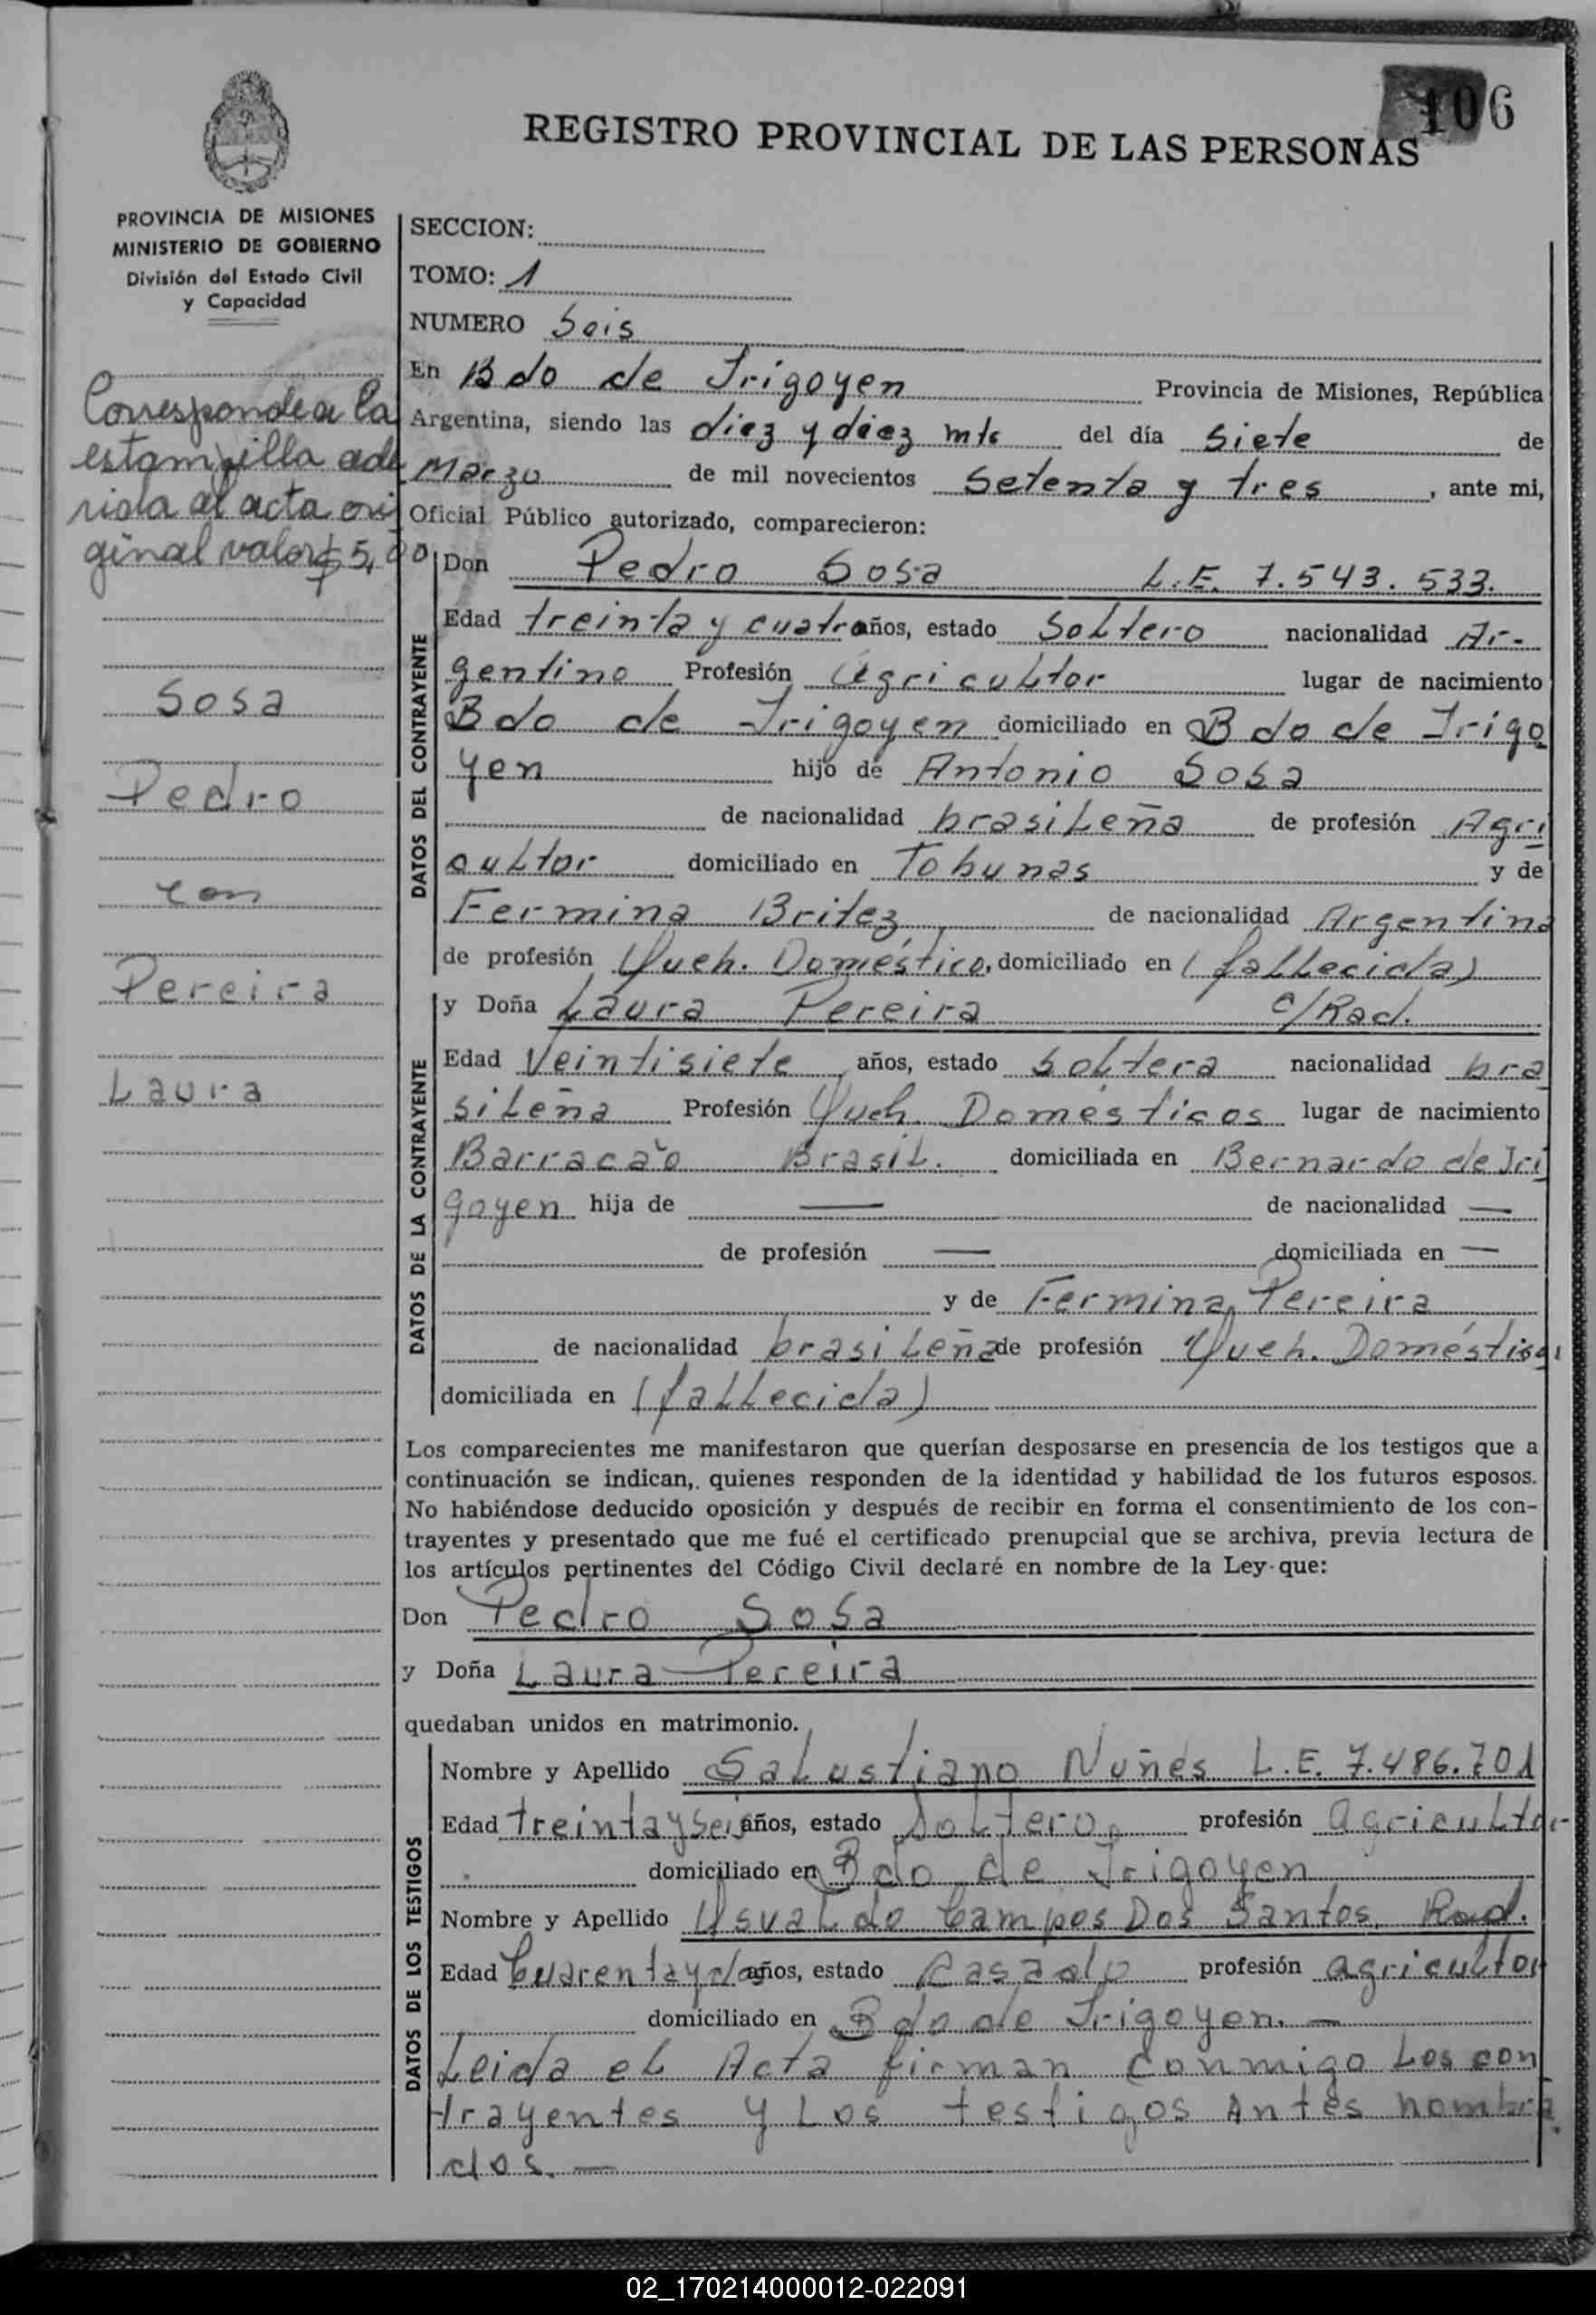 106
REGISTRO PROVINCIAL DE LAS PERSONAS
PROVINCIA DE MISIONES
MINISTERIO DE GOBIERNO
División del Estado Civil
y Capacidad
Corresponde a la
estampilla adhe
rida al acta ori
ginal valor $ 5,00
Sosa
Pedro
con
Pereira
Laura
SECCION:
TOMO: 1
NUMERO Seis
En Bdo de Irigoyen Provincia de Misiones, República
Argentina, siendo las diez y diez mts del día siete de
Marzo de mil novecientos Setenta y tres, ante mi,
Oficial Público autorizado, comparecieron:
DATOS DEL CONTRAYENTE
Don Pedro Sosa L.E. 7.543.533.
Edad treinta y cuatro años, estado Soltero nacionalidad Ar-
gentino Profesión Agricultor lugar de nacimiento
Bdo de Irigoyen domiciliado en Bdo de Irigo
yen hijo de Antonio Sosa
de nacionalidad brasileña de profesión Agri
cultor domiciliado en Tobunas y de
Fermina Britez de nacionalidad Argentina
de profesión Queh. Doméstico, domiciliado en (fallecida)
DATOS DE LA CONTRAYENTE
y Doña Laura Pereira c/Rad.
Edad Veintisiete años, estado Soltera nacionalidad bra
sileña Profesión Queh. Domésticos lugar de nacimiento
Barracão Brasil. domiciliada en Bernardo de Iri
goyen hija de — de nacionalidad —
de profesión — domiciliada en —
y de Fermina Pereira
de nacionalidad brasileña de profesión Queh. Doméstico
domiciliada en (fallecida)
Los comparecientes me manifestaron que querían desposarse en presencia de los testigos que a
continuación se indican, quienes responden de la identidad y habilidad de los futuros esposos.
No habiéndose deducido oposición y después de recibir en forma el consentimiento de los con-
trayentes y presentado que me fué el certificado prenupcial que se archiva, previa lectura de
los artículos pertinentes del Código Civil declaré en nombre de la Ley que:
Don Pedro Sosa
y Doña Laura Pereira
quedaban unidos en matrimonio.
DATOS DE LOS TESTIGOS
Nombre y Apellido Salustiano Nuñes L.E. 7.486.701
Edad treinta y seis años, estado Soltero profesión agricultor
domiciliado en Bdo de Irigoyen
Nombre y Apellido Usualdo Campos Dos Santos. Rad.
Edad Cuarenta y dos años, estado Casado profesión agricultor
domiciliado en Bdo de Irigoyen. —
Leida el Acta firman conmigo los con
trayentes y Los testigos Antes nombra
dos. —
02_170214000012-022091